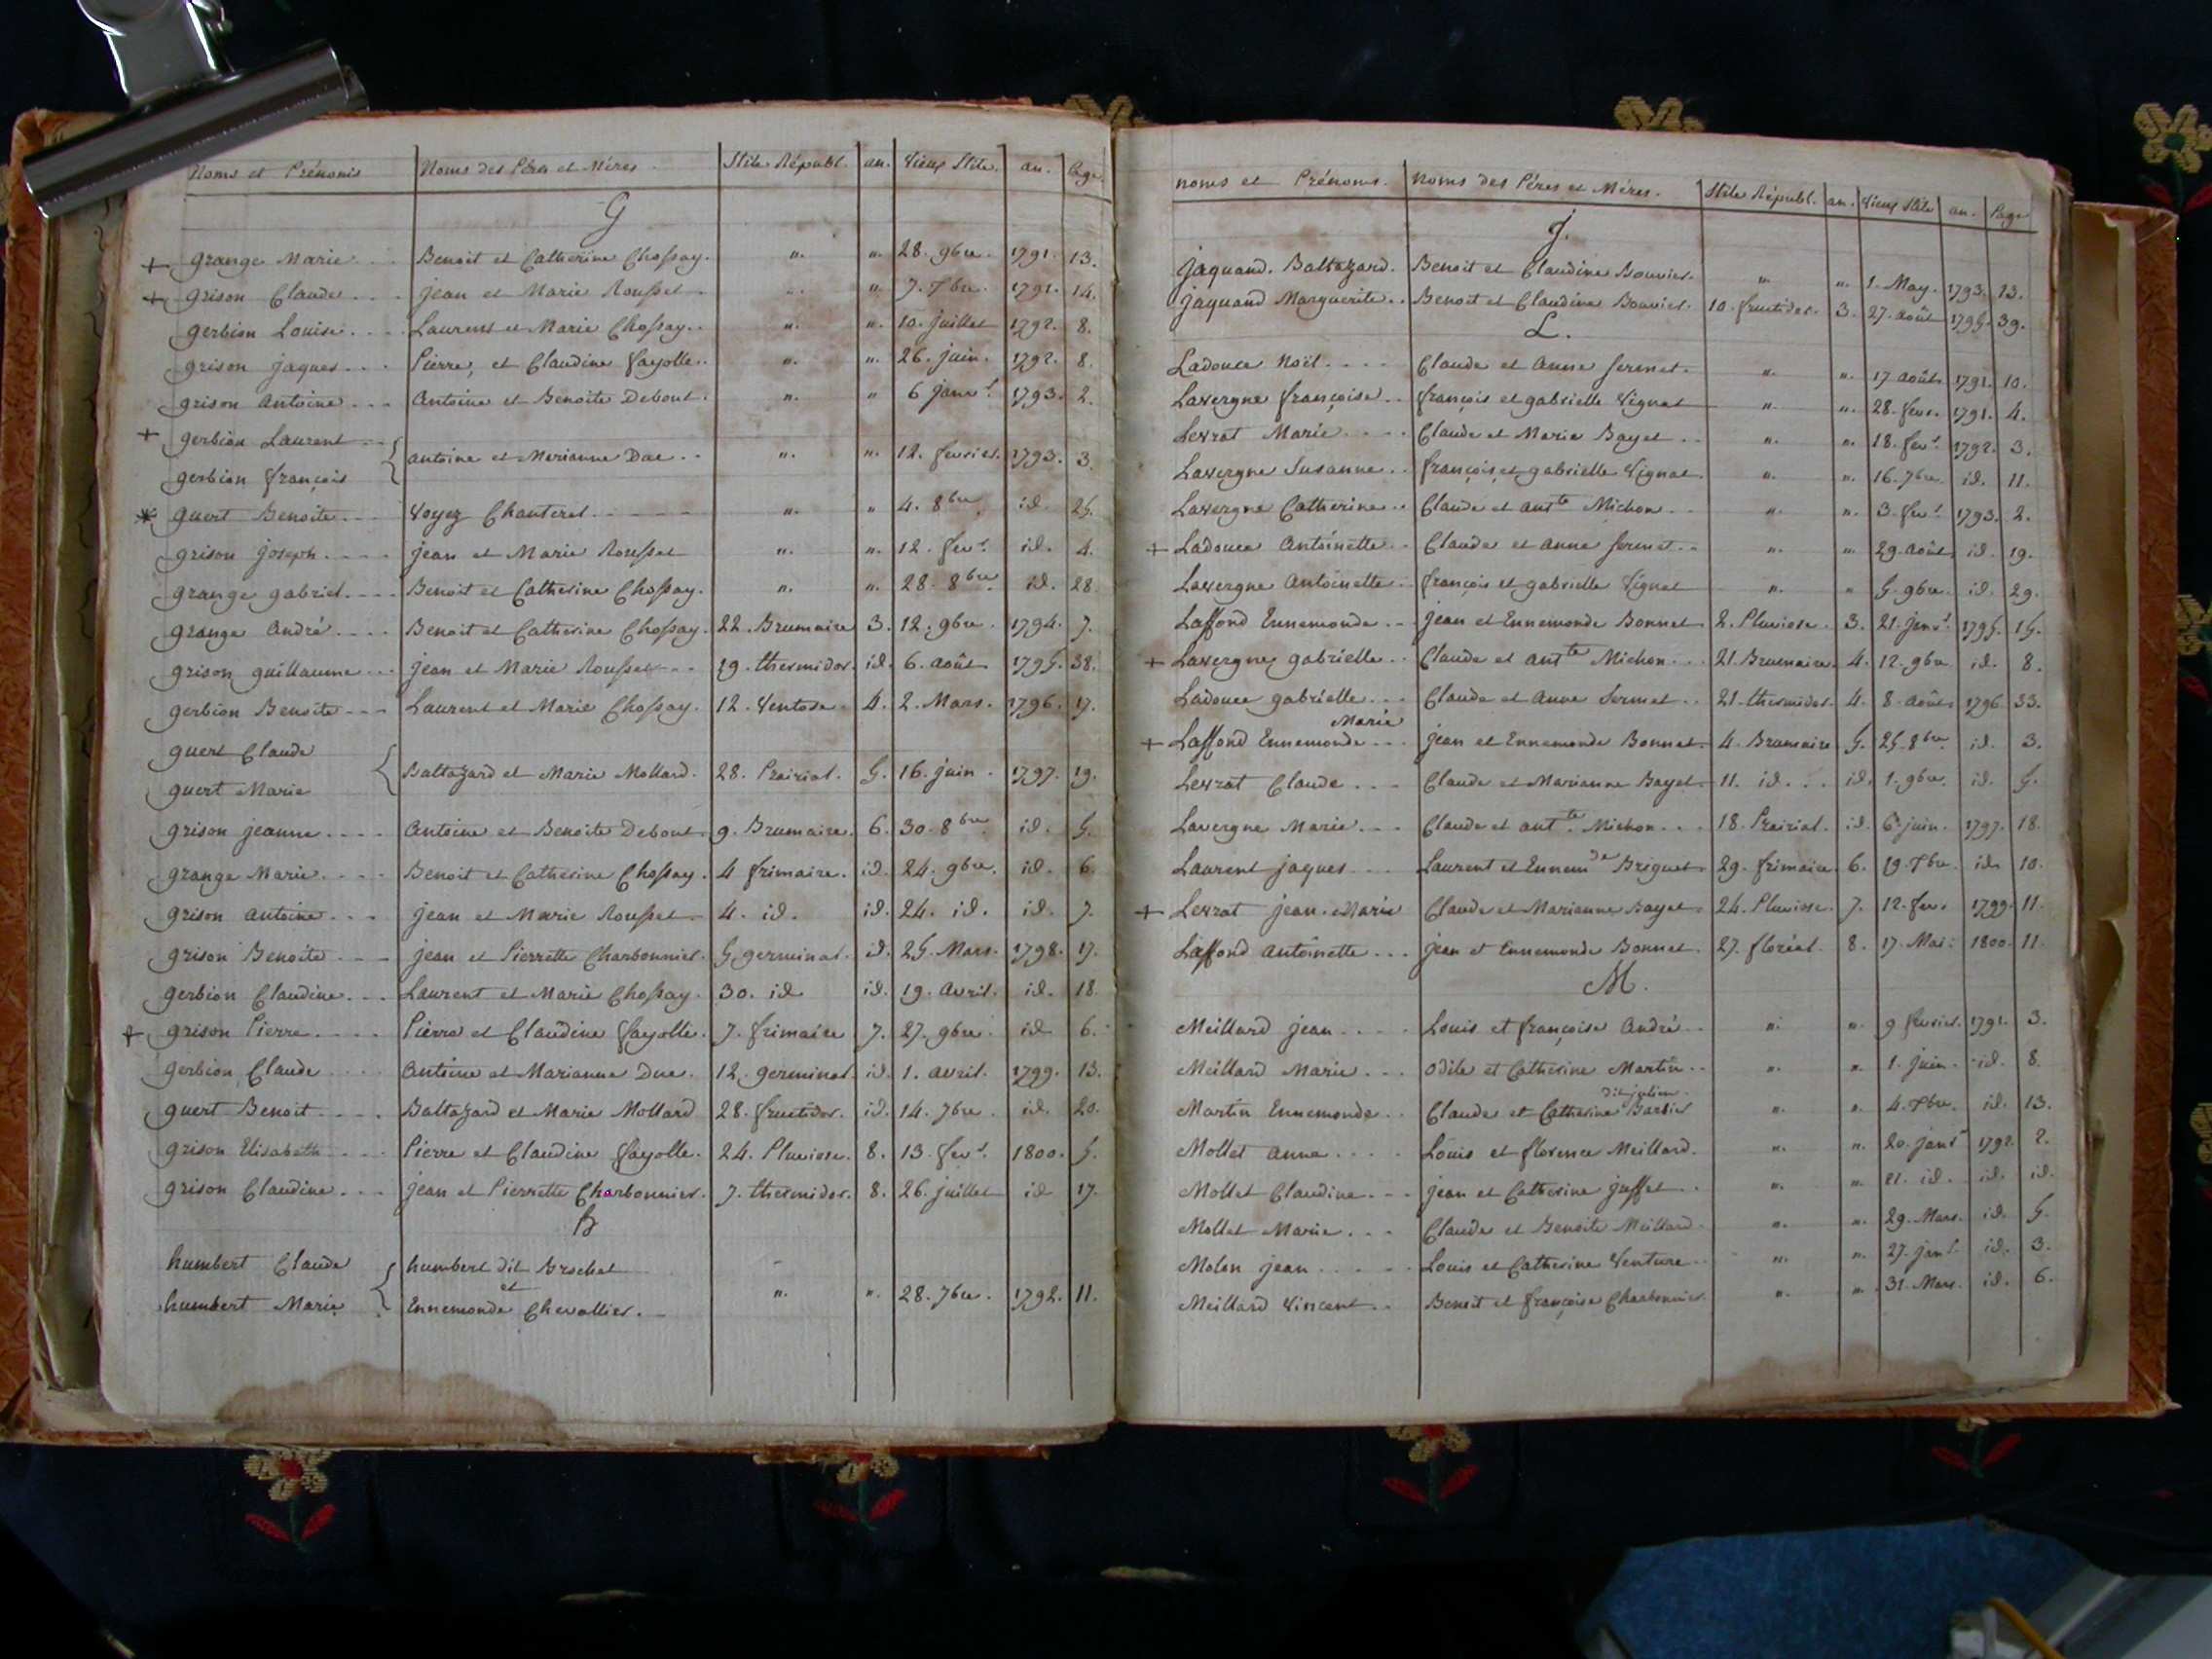 Noms et Prénoms Noms des Péres et Méres. Stile Républ. an. Vieux Stile. an. Page.
G
+ grange Marie... Benoit et Catherine Chossay. ". ". 28. 9bre. 1791. 13.
+ grison Claude... jean et Marie Rousset. ". ". 7. 7bre. 1791. 14.
gerbion Louise.... Laurens et Marie Chossay.. ". ". 10. juillet 1792. 8.
grison jaques... Pierre, et Claudine fayolle.. ". ". 26. juin. 1792. 8.
grison antoine... Antoine et Benoite Debout. ". " 6 janvr. 1793. 2.
+ gerbion Laurent
antoine et Marianne Due.. ". ". 12. fevrier. 1793. 3.
gerbion françois
* guert Benoite... Voyez Chanterel ". " 4. 8bre. id. 25.
grison joseph.... jean et Marie Rousset ". ". 12. fevr. id. 4.
grange gabriel.... Benoit et Catherine Chossay. ". ". 28. 8bre. id. 28
grange andré.... Benoit et Catherine Chossay. 22. Brumaire 3. 12. 9bre. 1794. 7.
grison guillaume... jean et Marie Rousset... 19. thermidor. id. 6. août 1795. 38.
gerbion Benoite... Laurent et Marie Chossay. 12. Ventose. 4. 2. Mars. 1796. 17.
guert Claude
Baltazard et Marie Mollard. 28. Prairial. 5. 16. juin. 1797. 19.
guert Marie
grison jeanne.... Antoine et Benoite Debout. 9. Brumaire. 6. 30. 8bre. id. 5.
grange Marie.... Benoit et Catherine Chossay. 4 frimaire. id. 24. 9bre. id. 6.
grison antoine... jean et Marie Rousset. 4. id. id. 24. id. id. 7.
grison Benoite... jean et Pierrette Charbonnier. 5 germinal. id. 25. Mars. 1798. 17.
gerbion Claudine... Laurent et Marie Chossay. 30. id id. 19. avril. id. 18.
+ grison Pierre.... Pierre et Claudine fayolle. 7. frimaire 7. 27. 9bre. id 6.
gerbion Claude.... Antoine et Marianne Due. 12. germinal. id. 1. avril. 1799. 13.
guert Benoit.... Baltazard et Marie Mollard 28. fructidor. id. 14. 7bre. id. 20.
grison Elisabeth... Pierre et Claudine fayolle. 24. Pluviose. 8. 13. fevr. 1800. 5.
grison Claudine... jean et Pierrette Charbonnier. 7. thermidor. 8. 26. juillet id 17.
h
humbert Claude humbert dit Brochet
et
humbert Marie Ennemonde Chevallier. ". ". 28. 7bre. 1792. 11.
noms et Prénoms. Noms des Péres et Méres. Stile Républ. an. Vieux Stile an. Page
J.
jaquand. Baltazard. Benoit et Claudine Bouvier. ". ". 1. May. 1793. 13.
jaquand Marguerite.. Benoit et Claudine Bouvier. 10. fructidor. 3. 27. août 1795. 39.
L.
Ladouce Noël.... Claude et anne fermet. ". ". 17 août. 1791. 10.
Lavergne françoise.. françois et gabrielle Vignat ". ". 28. fevr. 1791. 4.
Levrat Marie.... Claude et Marie Bayet.. ". ". 18. fevr. 1792. 3.
Lavergne Susanne.. françois et gabrielle Vignat. ". ". 16. 7bre. id. 11.
Lavergne Catherine.. Claude et antte Michon.. ". ". 3. fevr. 1793. 2.
+ Ladouce Antoinette.. Claude et anne fermet.. ". ". 29. août. id. 19.
Lavergne antoinette.. françois et gabrielle Vignat ". " 5. 9bre. id. 29.
Laffond Ennemonde.. jean et Ennemonde Bonnet. 2. Pluviose. 3. 21. janvr. 1795. 15.
+ Lavergne gabrielle.. Claude et antte Michon... 21. Brumaire. 4. 12. 9bre id. 8.
Ladouce gabrielle... Claude et anne fermet.. 21. thermidor. 4. 8. août. 1796 33.
Marie
+ Laffond Ennemonde... jean et Ennemonde Bonnet. 4. Brumaire 5. 25. 8bre. id. 3.
Levrat Claude... Claude et Marianne Bayet. 11. id... id. 1. 9bre. id. 5.
Lavergne Marie... Claude et antte. Michon... 18. Prairial. id. 6. juin. 1797. 18.
Laurent jaques... Laurent et Ennemde Briguet. 29. frimaire. 6. 19. Xbre. id. 10.
+ Levrat jean. Marie Claude et Marianne Bayet. 24. Pluviose. 7. 12. fevr. 1799. 11.
Laffond antoinette... jean et Ennemonde Bonnet. 27. floréal. 8. 17. Mai. 1800. 11.
M.
Meillard jean.... Louis et françoise andré.. ". ". 9 fevrier. 1791. 3.
Meillard Marie... odile et Catherine Martin.. ". ". 1. juin. id. 8.
dit julien.
Martin Ennemonde.. Claude et Catherine Barbier ". ". 4. Xbre. id. 13.
Mollet anne.... Louis et florence Meillard. ". ". 20. janvr 1792. 2.
Mollet Claudine... jean et Catherine juffet.. ". ". 21. id. id. id.
Mollet Marie... Claude et Benoite Meillard. ". ". 29. Mars. id. 5.
Molon jean..... Louis et Catherine Venture.. ". ". 27. janr. id. 3.
Meillard Vincent.. Benoit et françoise Charbonnier. ". ". 31. Mars. id. 6.